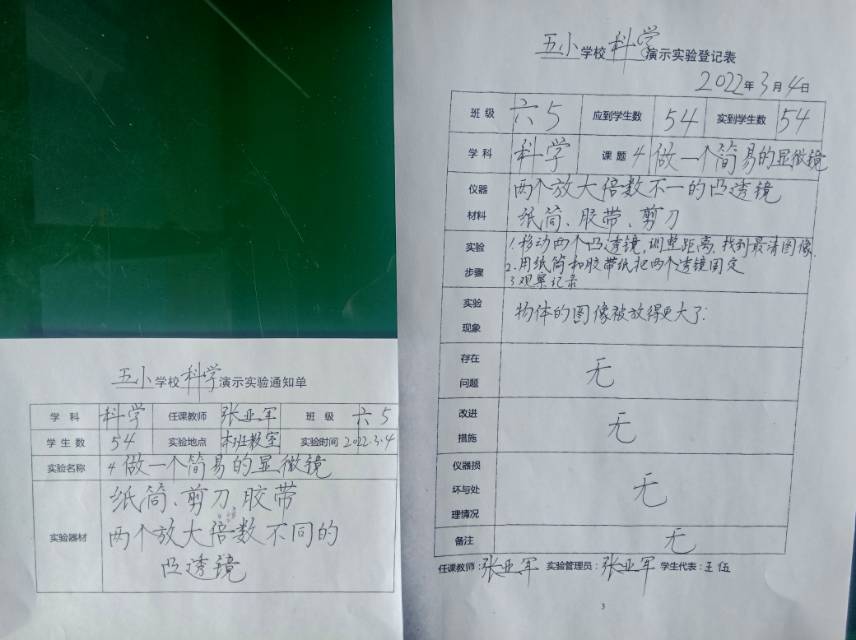 五小学校科学演示实验通知单
学科 科学 任课教师 张亚军 班级 六5
学生数 54 实验地点 本班教室 实验时间 2022.3.4
实验名称 4做一个简易的显微镜
实验器材 纸筒、剪刀、胶带
两个放大倍数不同的
凸透镜
五小学校科学演示实验登记表
2022年3月4日
班级 六5 应到学生数 54 实到学生数 54
学科 科学 课题 4做一个简易的显微镜
仪器材料 两个放大倍数不一的凸透镜
纸筒、胶带、剪刀
实验步骤 1.移动两个凸透镜,调整距离,找到最清图像.
2.用纸筒和胶带纸把两个透镜固定
3.观察记录
实验现象 物体的图像被放得更大了.
存在问题 无
改进措施 无
仪器损坏与处理情况 无
备注 无
任课教师:张亚军 实验管理员:张亚军 学生代表:王伍
3